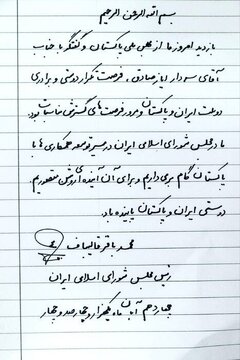 بسم الله الرحمن الرحیم
بازدید امروز ما از مجلس ملی پاکستان و گفتگو با جناب
آقای سردار ایاز صادق، فرصت تکرار دوستی و برادری
دو ملت ایران و پاکستان و مرور فرصت‌های گسترش مناسبات بود.
ما در مجلس شورای اسلامی ایران در مسیر توسعه همکاری‌ها با
پاکستان گام برمی‌داریم و برای آن آینده‌ای روشن متصوریم.
دوستی ایران و پاکستان پاینده باد.
محمد باقر قالیباف
رئیس مجلس شورای اسلامی ایران
چهاردهم آبان ماه یکهزار و چهارصد و چهار